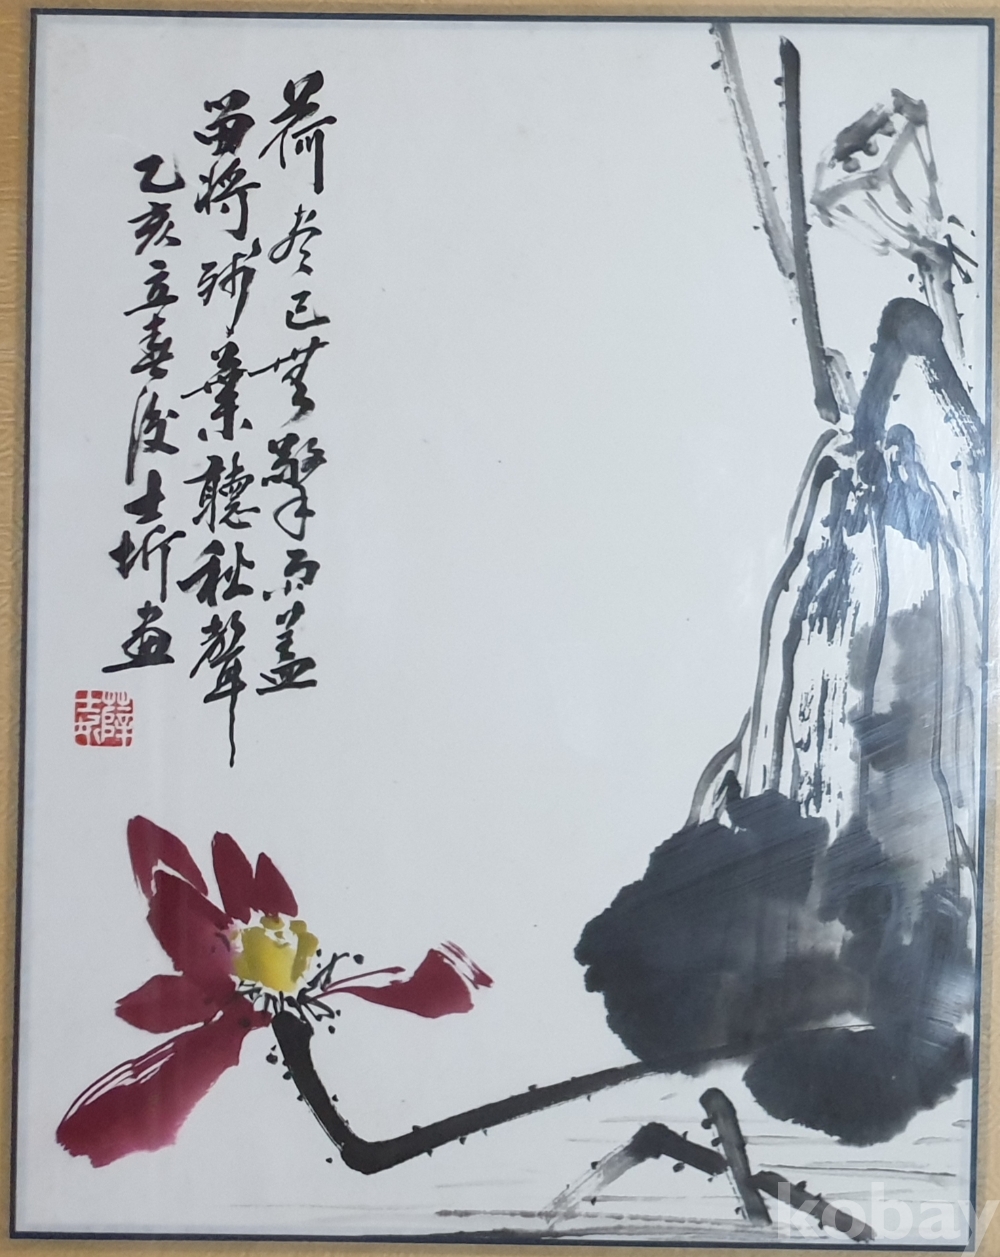 荷尽已無擎雨盖
留將残葉聽秋聲
乙亥立春後士圻画
kobay